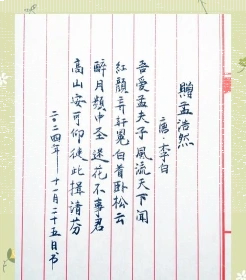 赠孟浩然
唐·李白
吾爱孟夫子风流天下闻
红颜弃轩冕白首卧松云
醉月频中圣迷花不事君
高山安可仰徒此揖清芬
二〇二四年十一月二十五日书